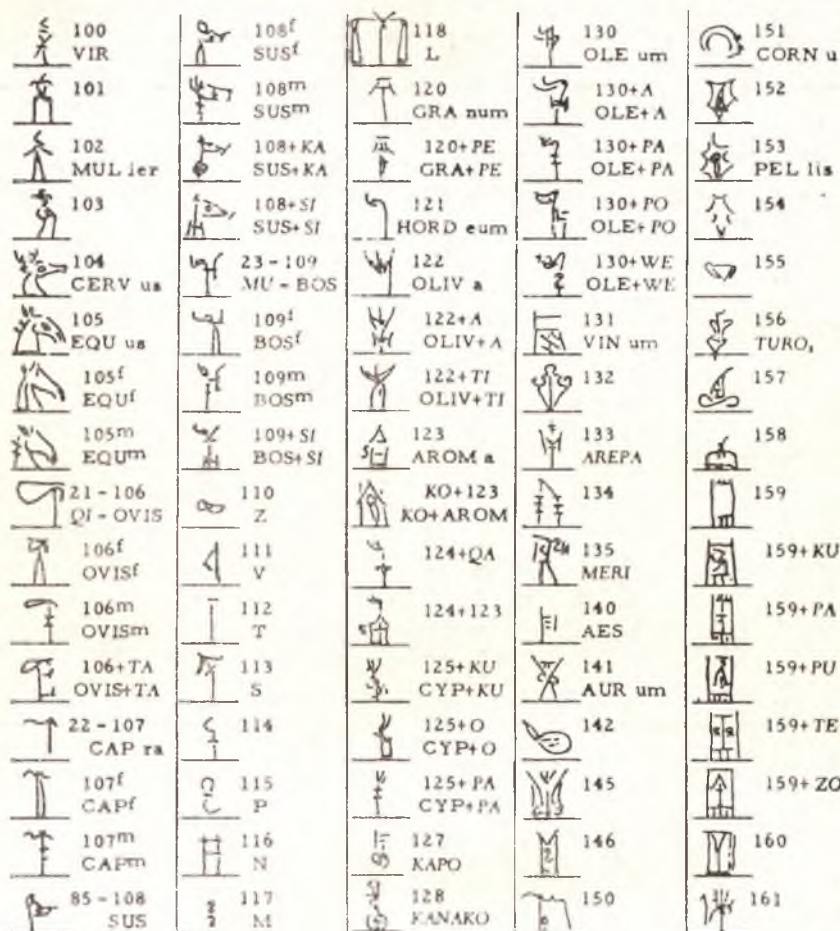 100
VIR
101
102
MUL ier
103
104
CERV us
105
EQU us
105f
EQUf
105m
EQUm
21-106
QI-OVIS
106f
OVISf
106m
OVISm
106+TA
OVIS+TA
22-107
CAP ra
107f
CAPf
107m
CAPm
85-108
SUS
108f
SUSf
108m
SUSm
108+KA
SUS+KA
108+SI
SUS+SI
23-109
MU-BOS
109f
BOSf
109m
BOSm
109+SI
BOS+SI
110
Z
111
V
112
T
113
S
114
115
P
116
N
117
M
118
L
120
GRA num
120+PE
GRA+PE
121
HORD eum
122
OLIV a
122+A
OLIV+A
122+TI
OLIV+TI
123
AROM a
KO+123
KO+AROM
124+QA
124+123
125+KU
CYP+KU
125+O
CYP+O
125+PA
CYP+PA
127
KAPO
128
KANAKO
130
OLE um
130+A
OLE+A
130+PA
OLE+PA
130+PO
OLE+PO
130+WE
OLE+WE
131
VIN um
132
133
AREPA
134
135
MERI
140
AES
141
AUR um
142
145
146
150
151
CORN u
152
153
PEL lis
154
155
156
TURO₂
157
158
159
159+KU
159+PA
159+PU
159+TE
159+ZO
160
161